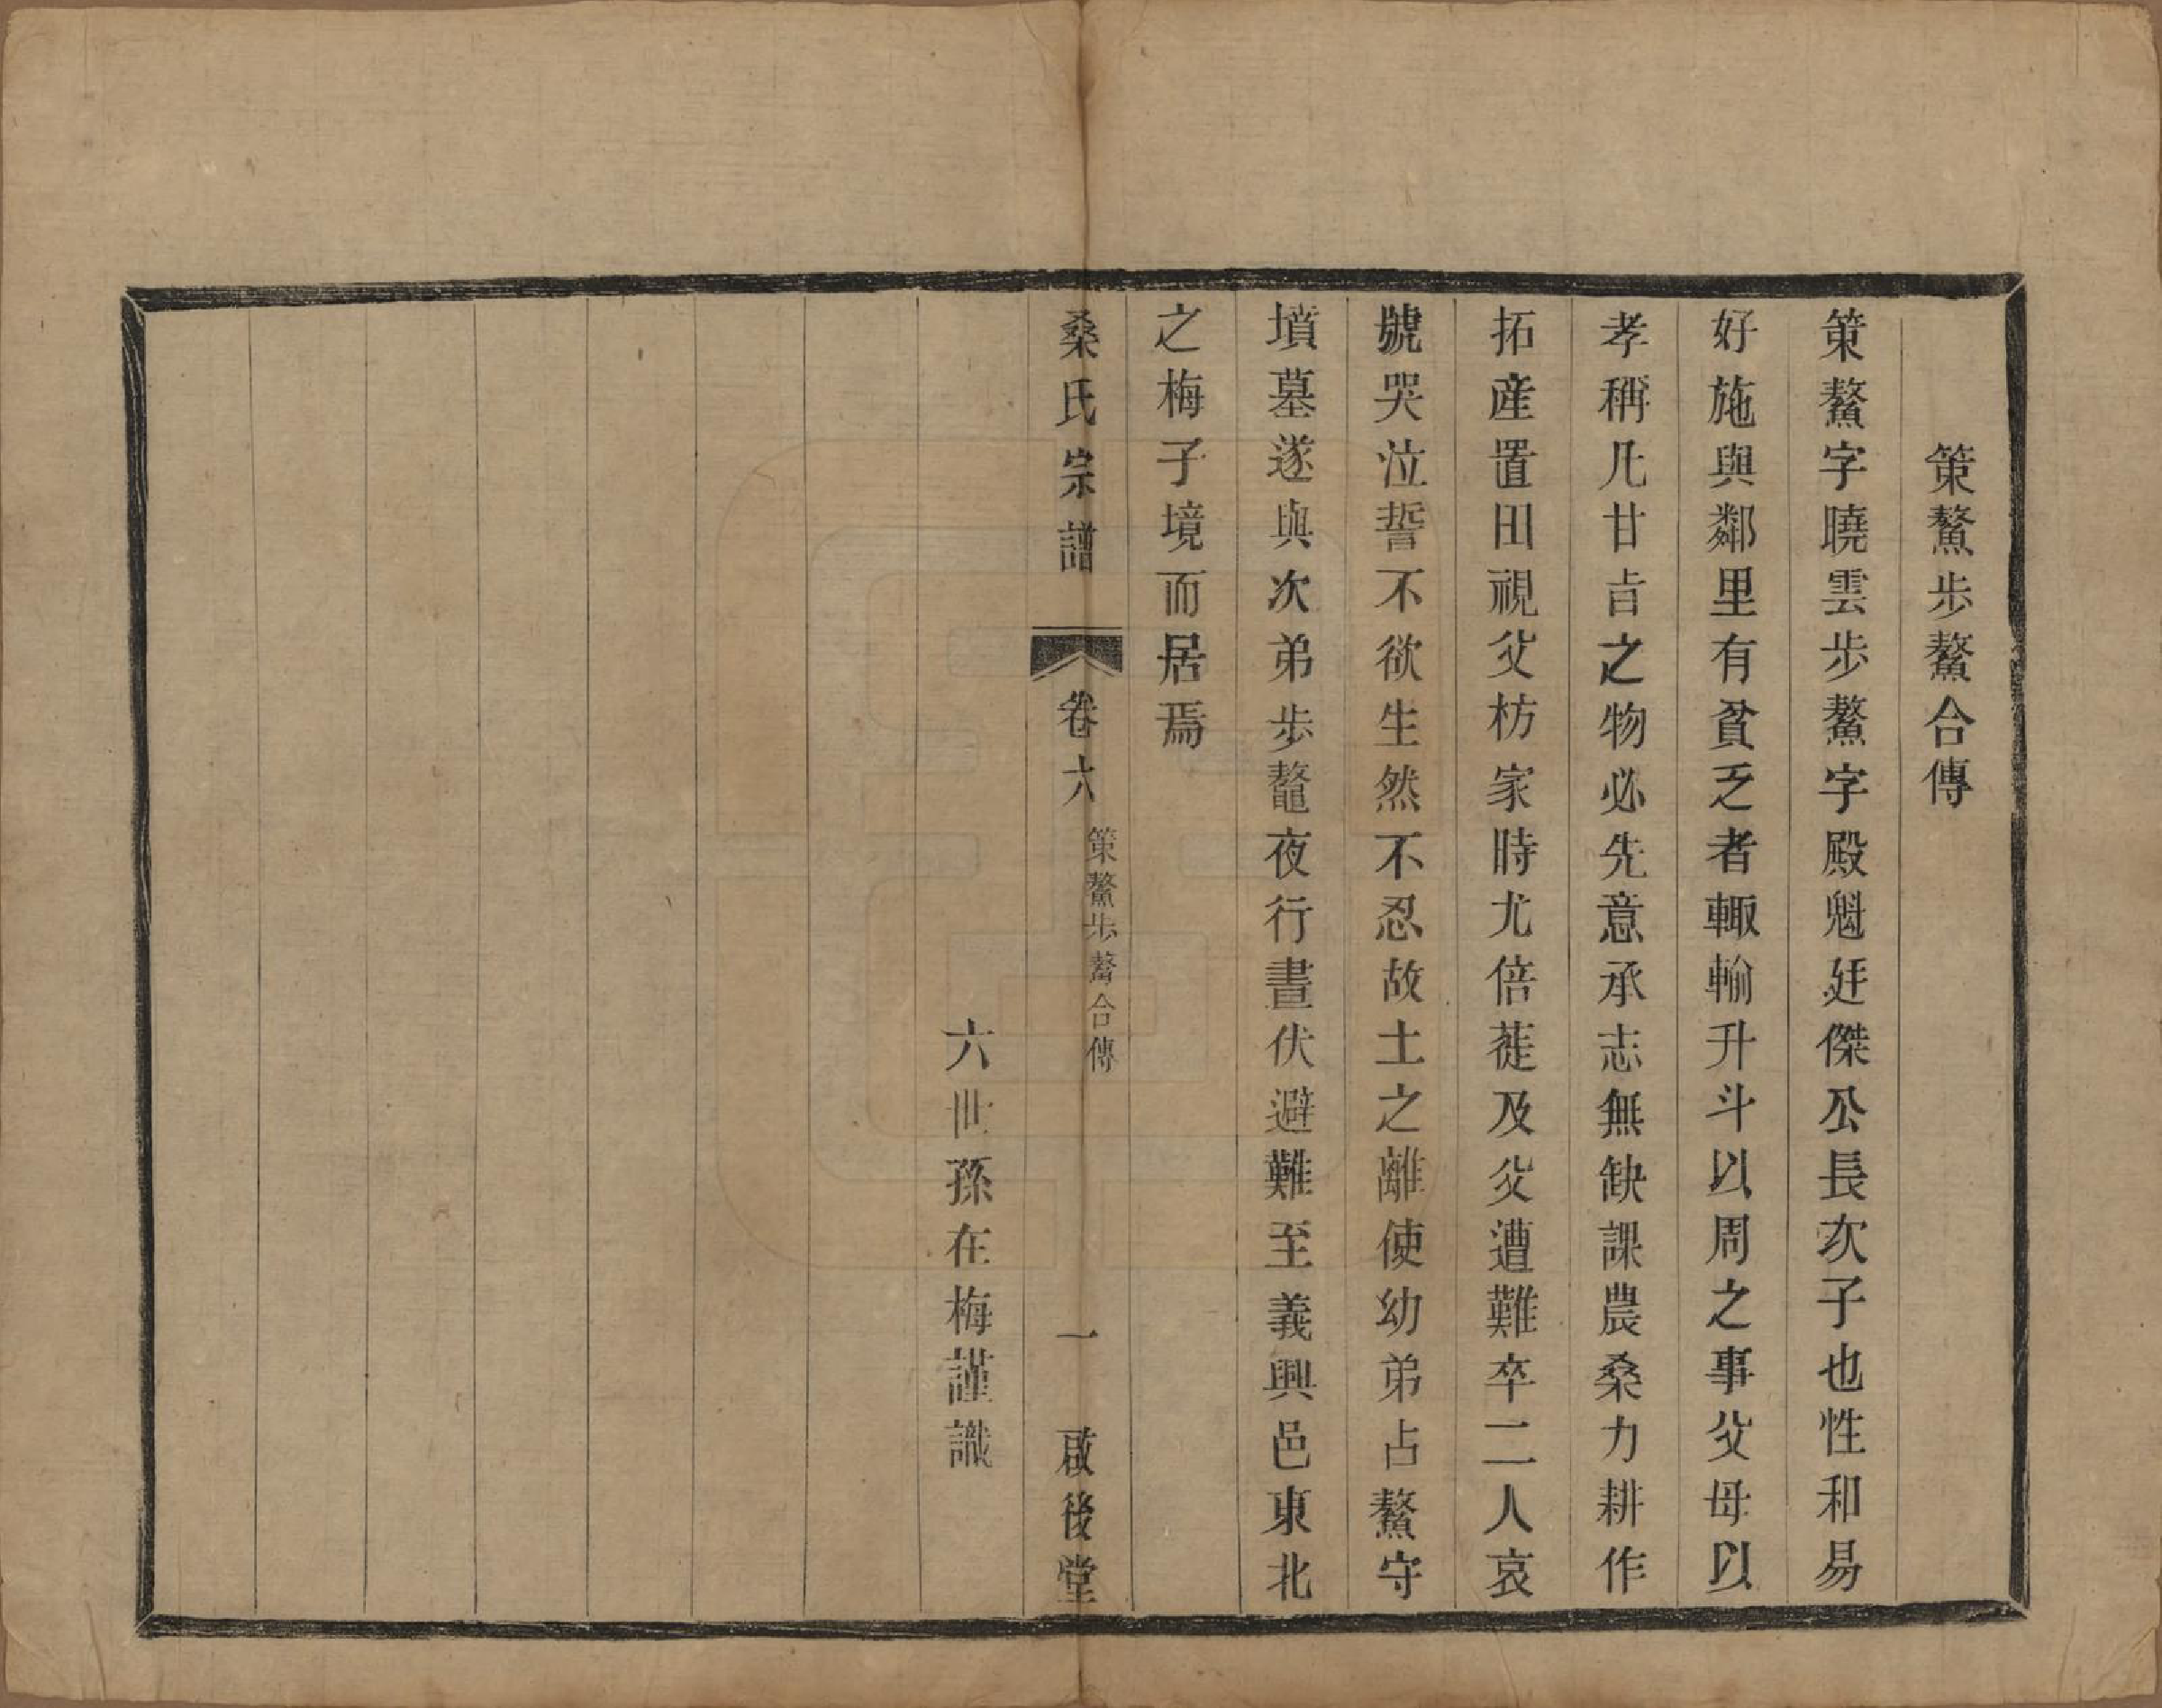 策鰲步鰲合傳
策鰲字曉雲步鰲字殿魁廷傑公長次子也性和易
好施與鄰里有貧乏者輙輸升斗以周之事父母以
孝稱凡甘旨之物必先意承志無缺課農桑力耕作
拓產置田視父枋家時尤倍蓰及父遭難卒二人哀
號哭泣誓不欲生然不忍故土之離使幼弟占鰲守
墳墓遂與次弟步鼇夜行晝伏避難至義興邑東北
之梅子境而居焉
桑氏宗譜 卷六 策鰲步鰲合傳 一 啟後堂
六世孫在梅謹識